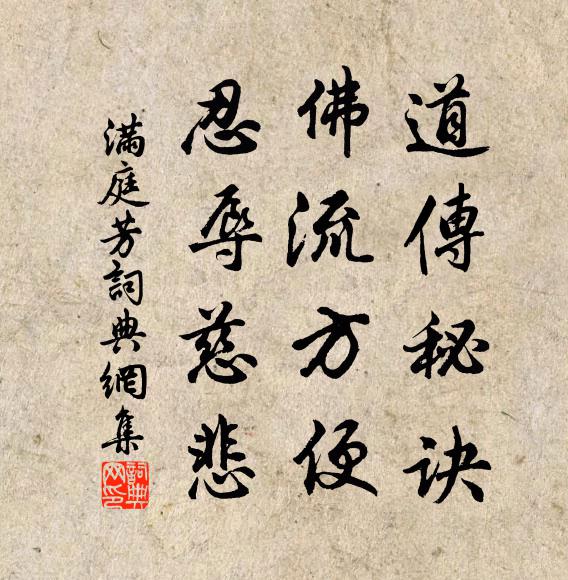 道傳秘訣
佛流方便
忍辱慈悲
滿庭芳詞典網集
詞典
网印